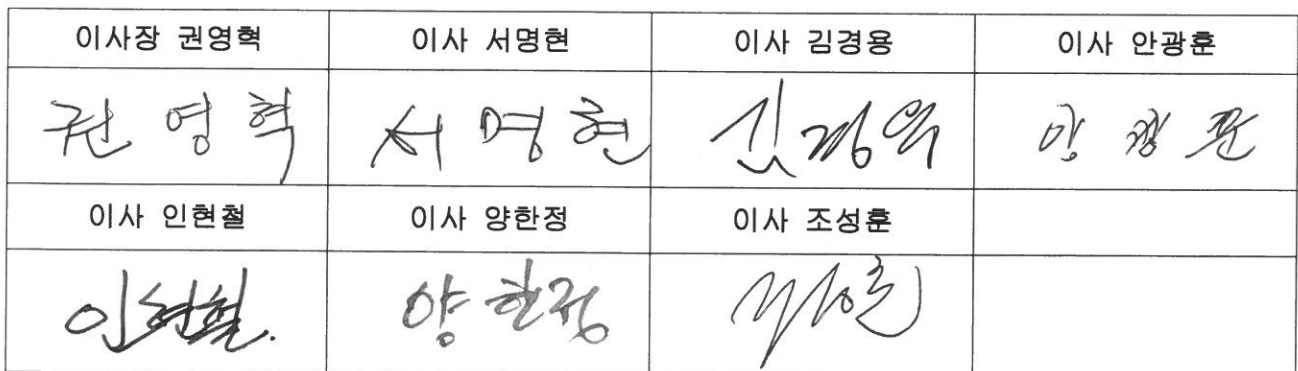 이사장 권영혁 이사 서명현 이사 김경용 이사 안광훈
권영혁 서명현 김경용 안광훈
이사 인현철 이사 양한정 이사 조성훈
인현철. 양한정 조성훈